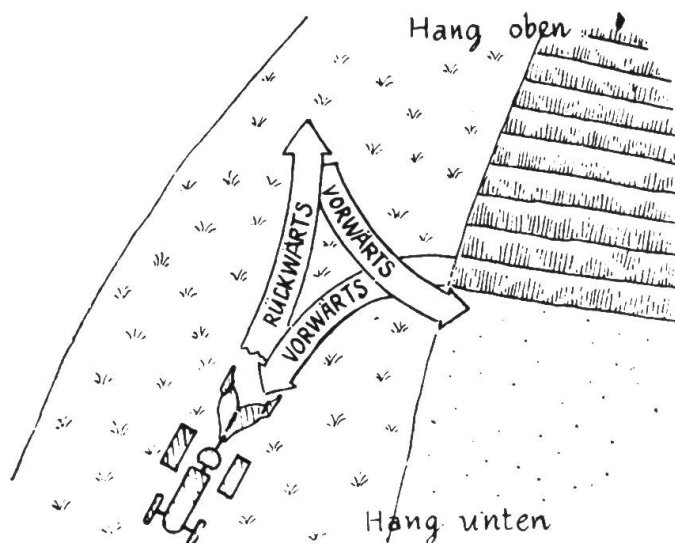 Hang oben
RÜCKWÄRTS
VORWÄRTS
VORWÄRTS
Hang unten